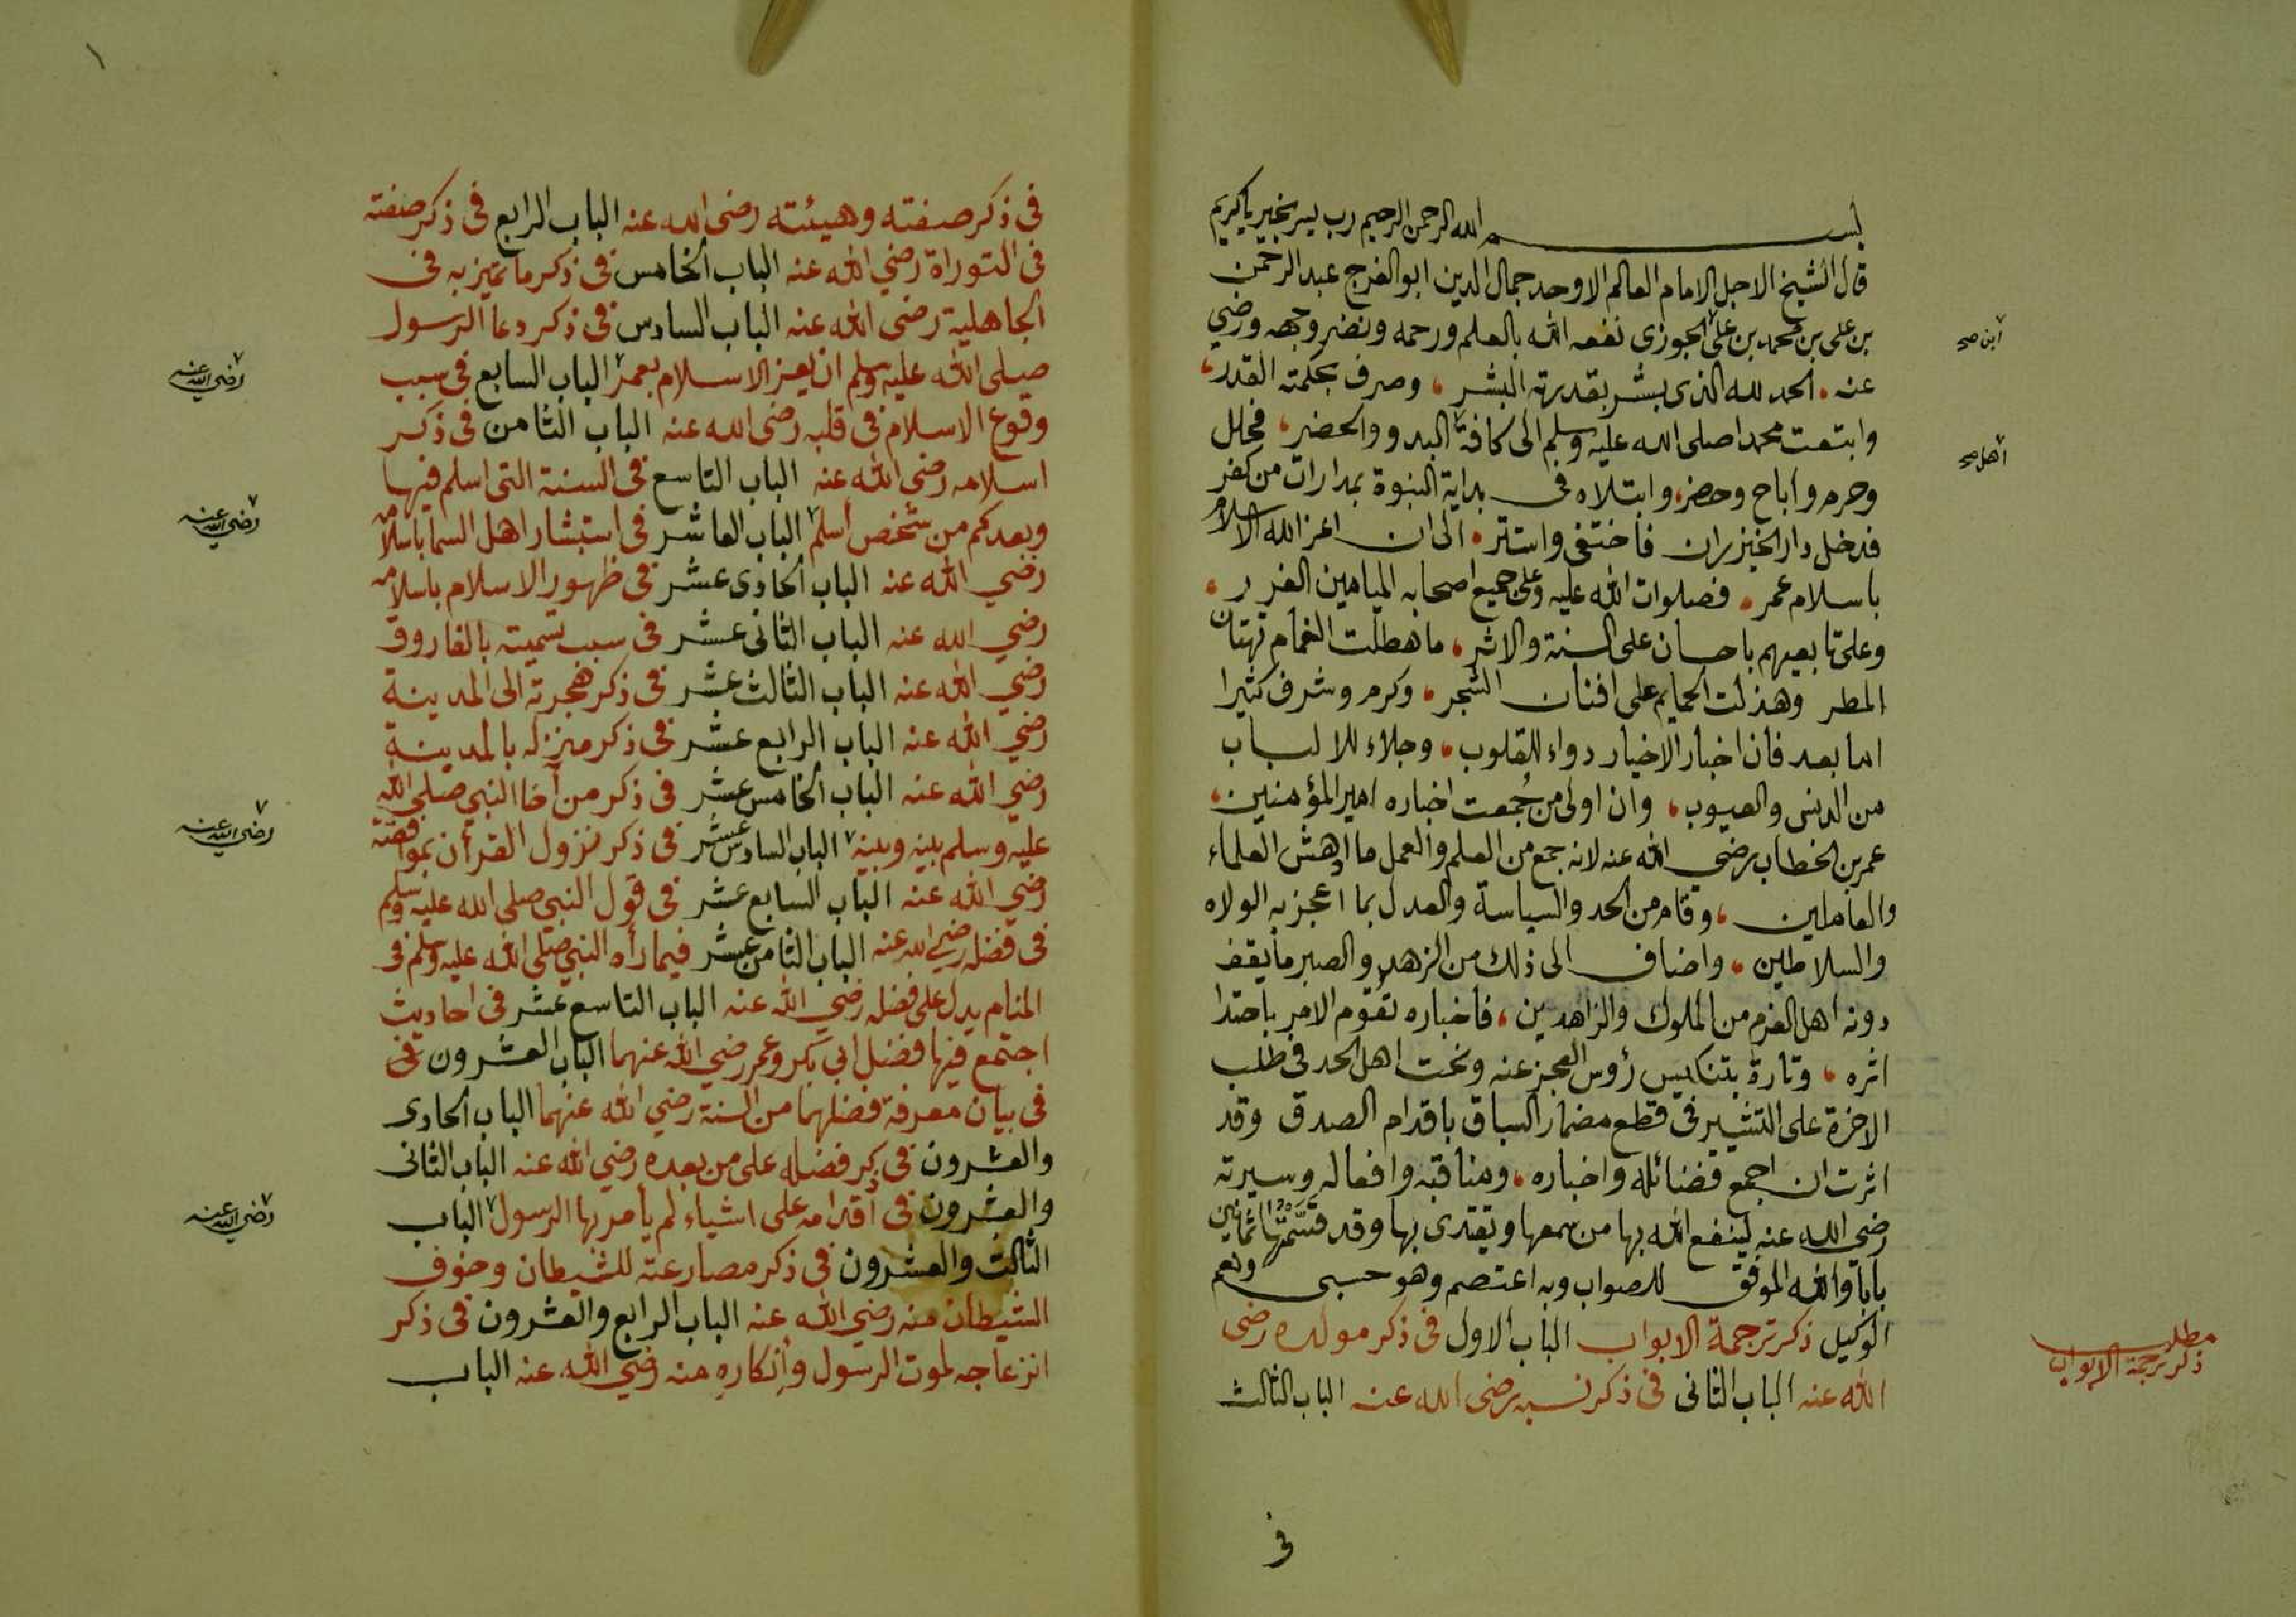 بسم الله الرحمن الرحيم رب يسر بخير يا كريم
قال الشيخ الاجل الامام العالم الاوحد جمال الدين ابو الفرج عبد الرحمن
بن على بن محمد بن على الجوزى نفعه الله بالعلم ورحمه ونضر وجهه ورضي
ابن صح
عنه . الحمد لله الذى بشر بقدرته البشر ، وصرف بحكمته القدر ،
وابتعث محمدا صلى الله عليه وسلم الى كافة البدو والحضر ، فحلل
اهل صح
وحرم واباح وحضر، وابتلاه فى بداية النبوة بمدارات من كفر
فدخل دار الخيزران فاختفى واستتر . الى ان اعز الله الاسلام
باسلام عمر . فصلوات الله عليه وعلى جميع اصحابه الميامين الغرر ،
وعلى تابعيهم باحسان على السنة والاثر ، ما هطلت الغمام تهتان
المطر وهذلت الحمايم على افنان الشجر ، وكرم وشرف كثيرا
اما بعد فان اخبار الاخيار دواء للقلوب ، وجلاء للالباب
من الدنس والعيوب ، وان اولى من جُمعت اخباره امير المؤمنين ،
عمر بن الخطاب رضي الله عنه لانه جمع من العلم والعمل ما ادهش العلماء
والعاملين ، وقام من الحد والسياسة والعدل بما اعجز به الولاه
والسلاطين ، واضاف الى ذلك من الزهد والصبر ما يقف
دونه اهل العزم من الملوك والزاهدين ، فاخباره تقوم الامر باحتدا
اثره ، وتارة بتنكيس رؤس العجز عنه ونحت اهل الحد فى طلب
الاخرة على التشمير فى قطع مضمار السباق باقدام الصدق وقد
اثرت ان اجمع فضائله واخباره ، ومناقبه وافعاله وسيرته
رضى الله عنه لينفع الله بها من سمعها ويقتدى بها وقد قسمتها ثمانين
بابا والله الموفق للصواب وبه اعتصم وهو حسبى ونعم
الوكيل ذكر ترجمة الابواب الباب الاول فى ذكر مولده رضى
مطلب
ذكر ترجمة الابواب
الله عنه الباب الثانى فى ذكر نسبه رضى الله عنه الباب الثالث
فى
١
فى ذكر صفته وهيئته رضى الله عنه الباب الرابع فى ذكر صفته
فى التوراة رضي الله عنه الباب الخامس فى ذكر ما تميز به فى
الجاهلية رضى الله عنه الباب السادس فى ذكر دعا الرسول
صلى الله عليه وسلم ان يعز الاسلام بعمر الباب السابع فى سبب
رضي الله عنه
وقوع الاسلام فى قلبه رضى الله عنه الباب الثامن فى ذكر
اسلامه رضى الله عنه الباب التاسع فى السنة التى اسلم فيها
وبعدكم من شخص أسلم الباب العاشر فى استبشار اهل السما باسلامه
رضي الله عنه
رضي الله عنه الباب الحادى عشر فى ظهور الاسلام باسلامه
رضي الله عنه الباب الثانى عشر فى سبب تسميته بالفاروق
رضي الله عنه الباب الثالث عشر فى ذكر هجرته الى المدينة
رضي الله عنه الباب الرابع عشر فى ذكر منزله بالمدينة
رضي الله عنه الباب الخامس عشر فى ذكر من آخا النبي صلى الله
عليه وسلم بينه وبينه الباب السادس عشر فى ذكر نزول القرأن بموافقته
رضي الله عنه
رضي الله عنه الباب السابع عشر فى قول النبي صلى الله عليه وسلم
فى فضله رضي الله عنه الباب الثامن عشر فيما رأه النبي صلى الله عليه وسلم فى
المنام يدل على فضله رضي الله عنه الباب التاسع عشر فى احاديث
اجتمع فيها فضل ابي بكر وعمر رضي الله عنهما الباب العشرون فى
فى بيان معرفة فضلهما من السنة رضي الله عنهما الباب الحادى
والعشرون فى ذكر فضله على من بعده رضي الله عنه الباب الثانى
والعشرون فى أقدامه على اشياء لم يأمر بها الرسول الباب
رضي الله عنه
الثالث والعشرون فى ذكر مصارعته للشيطان وخوف
الشيطان منه رضي الله عنه الباب الرابع والعشرون فى ذكر
انزعاجه لموت الرسول وأنكاره منه رضي الله عنه الباب